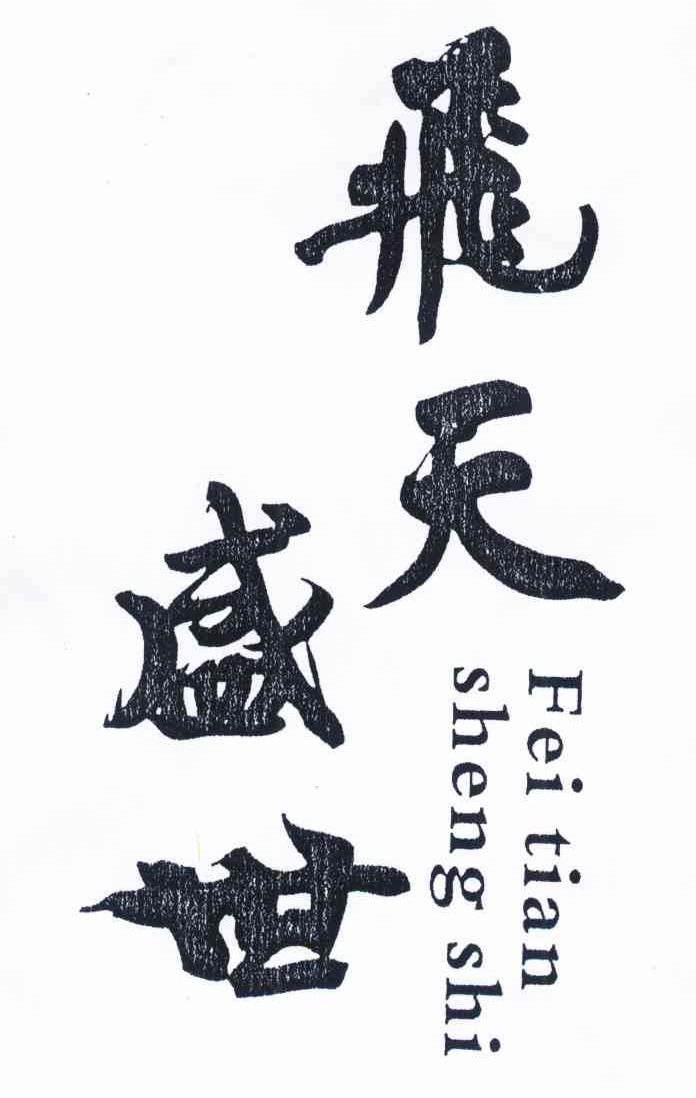 飛天
盛世
Fei tian
sheng shi